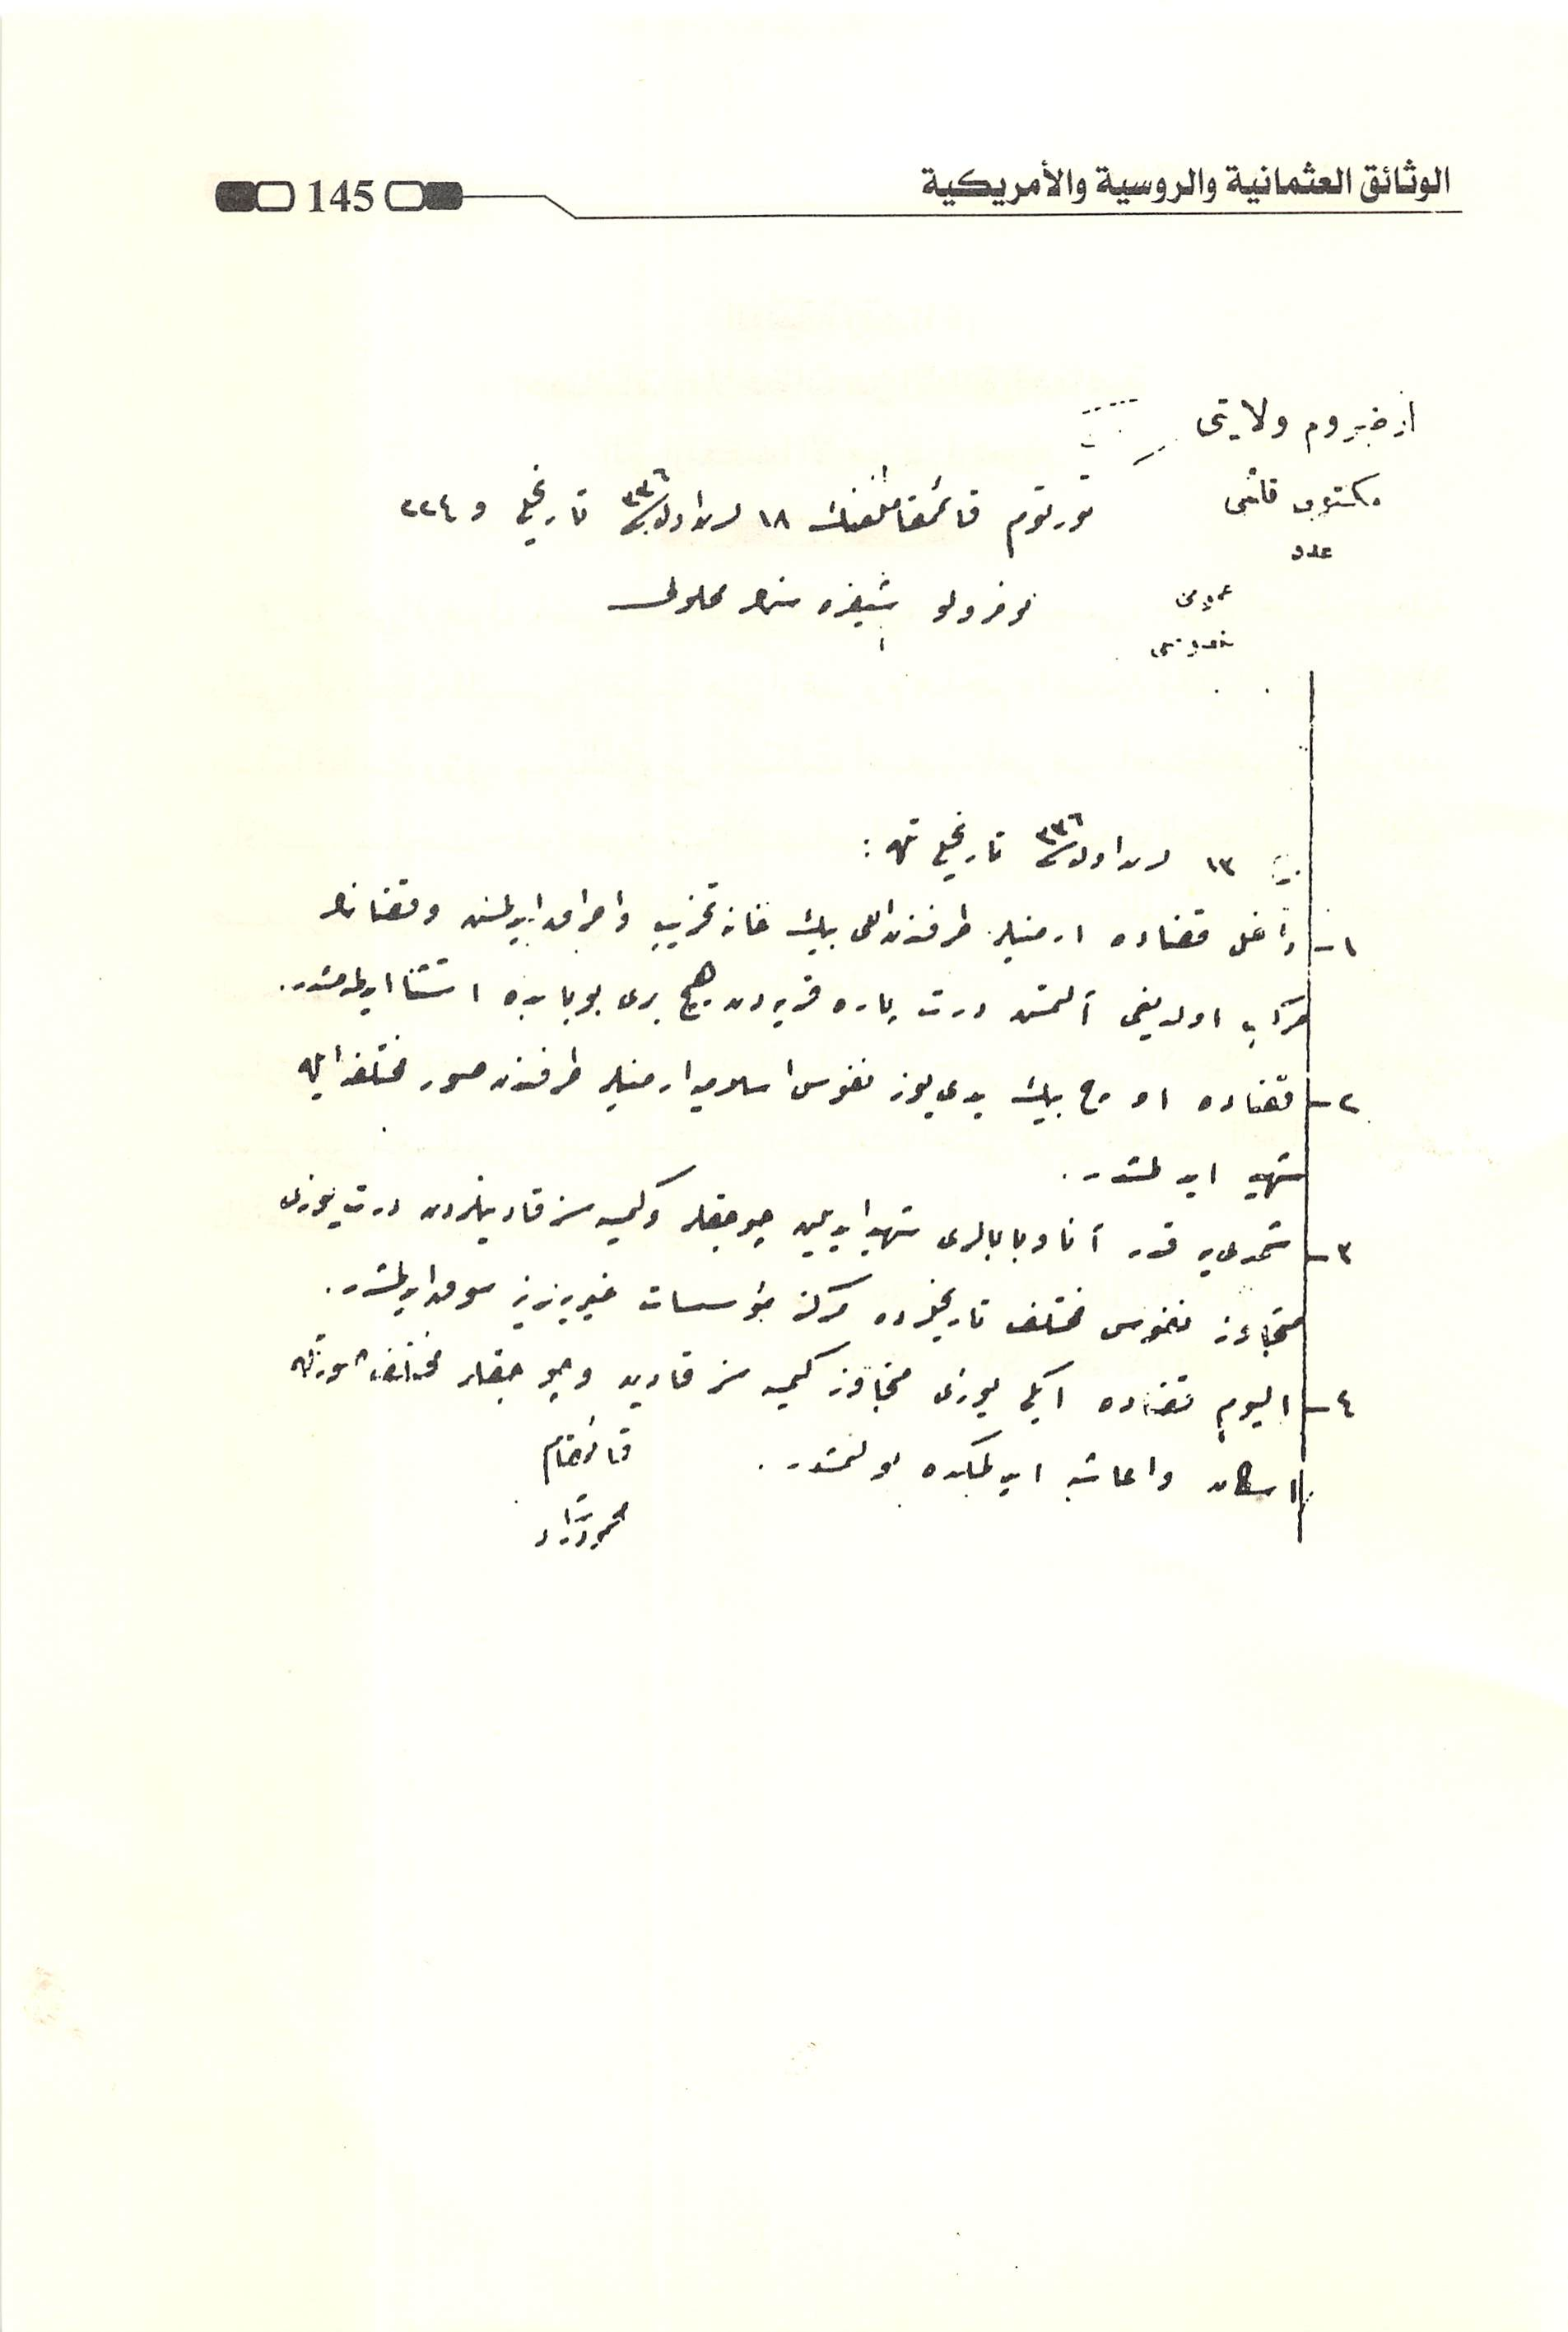 الوثائق العثمانية والروسية والأمريكية
145
ارضروم ولايتى
مكتوبى قلمى
عدد
عمومى
خصوصى
تورتوم قائمقاملغنك ١٨ ٣٣٦ تاريخلى و ٢٢٤
نومرولو شيفره سنك محلولى
١٣ ٣٣٦ تاريخلى
١- داخل قضاده ارمنيلر طرفندن اللى بيك خانه تخريب و احراق ايدلمش وقضانك
مركب اولديغى آلتمش درت پاره قريه دن هيچ برى بو بابده استثنا ايدلمه مشدر.
٢- قضاده اوچ بيك يدى يوز نفوس اسلاميه ارمنيلر طرفندن صور مختلفه ايله
شهيد ايدلمشدر.
٣- شمدى يه قدر آنا و بابالرى شهيد ايديلن چوجقلر و كيمسه سز قادينلردن درت يوزى
متجاوز نفوس مختلف تاريخلرده مركز مؤسسات خيريه يه سوق ايدلمشدر.
٤- اليوم قضاده ايكى يوزى متجاوز كيمسه سز قادين و چوجقلر مختلف صورتله
اسكان و اعاشه ايدلمكده بولنمشدر.
قائمقام